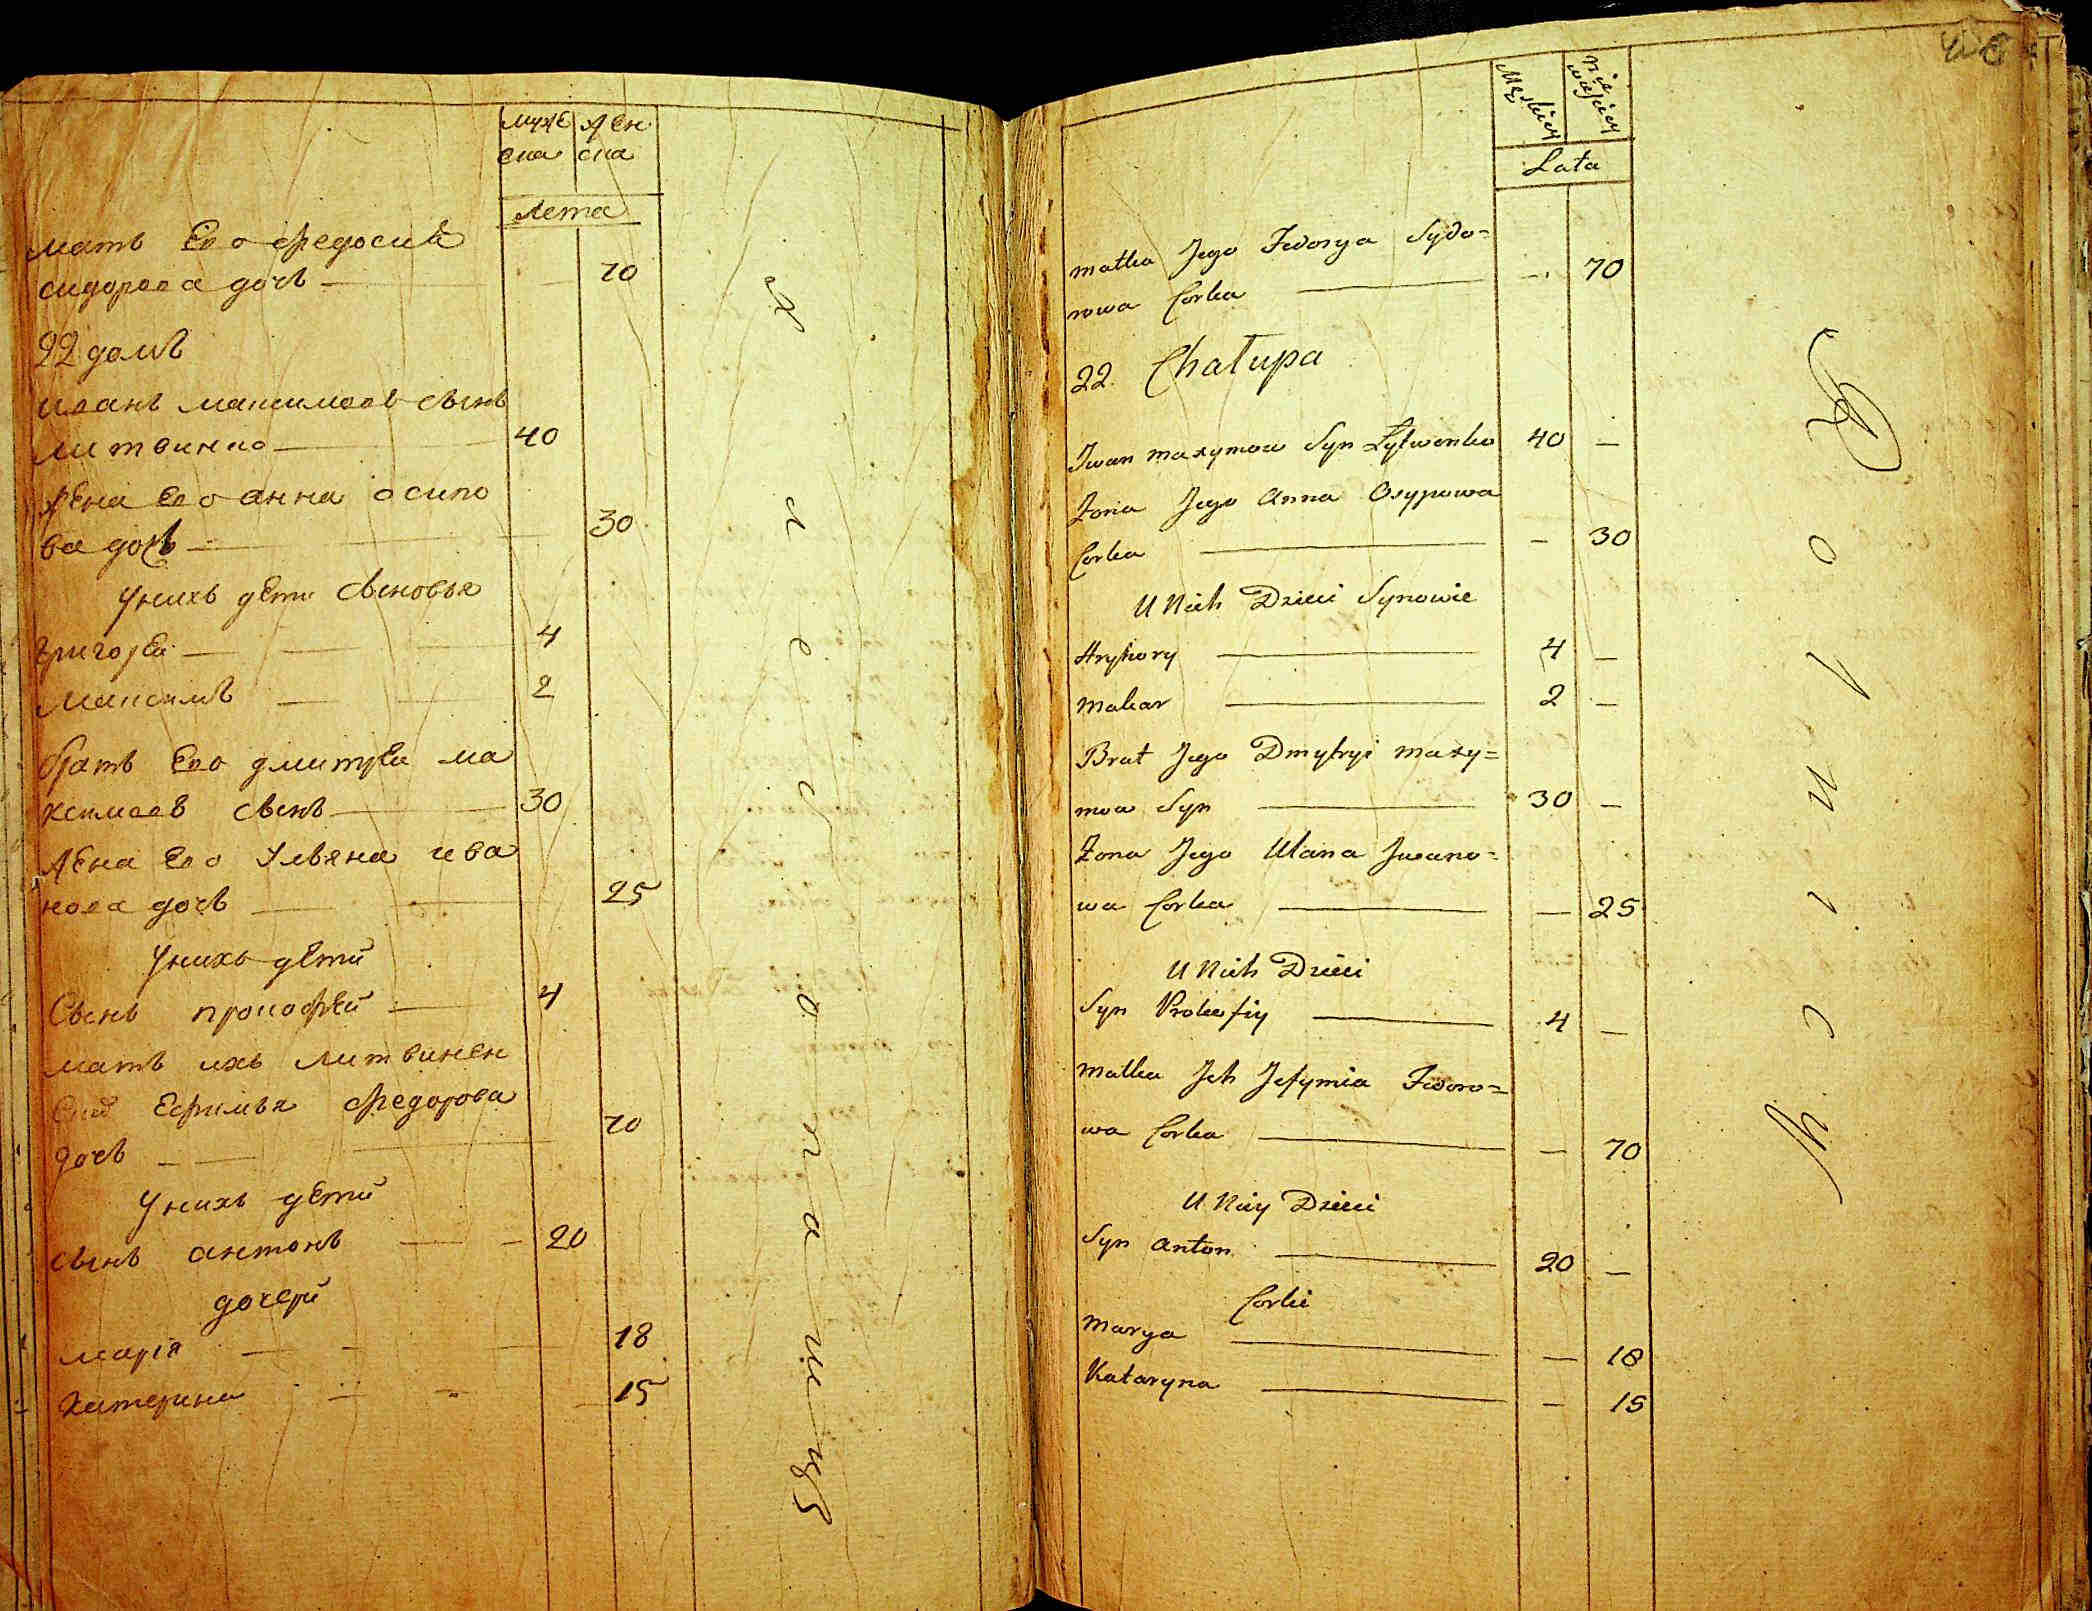 муже жен
ска ска
Лета
мать Ево федосия
сидорова дочь 70
22 домъ
иванъ максимовъ сынъ
литвинко 40
жена Ево анна осипо
ва дочь 30
Унихъ дети сыновья
григорей 4
Максимъ 2
братъ Ево дмитрей ма
ксимовъ сынъ 30
жена Ево Ульяна ива
нова дочь 25
Унихъ дети
Сынъ прокофей 4
мать ихъ литвинен
Ефимья федорова
дочь 70
Унихъ дети
сынъ антонъ 20
дочери
марія 18
катерина 15
Męskiey Niewieściey
Lata
matka Jego Fedosya Sydo=
rowa Corka — 70
22. Chałupa
Iwan maxymow Syn Lytwenko 40 —
Żona Jego Anna Osypowa
Corka — 30
U Nich Dzieci Synowie
Hryhory 4 —
Makar 2 —
Brat Jego Dmytryi maxy=
mow Syn 30 —
Żona Jego Ulana Iwano=
wa Corka — 25
U Nich Dzieci
Syn Prokofiy 4 —
Matka Ich Jefymia Fedoro=
wa Corka — 70
U Niey Dzieci
Syn Anton 20 —
Corki
Marya — 18
Kataryna — 15